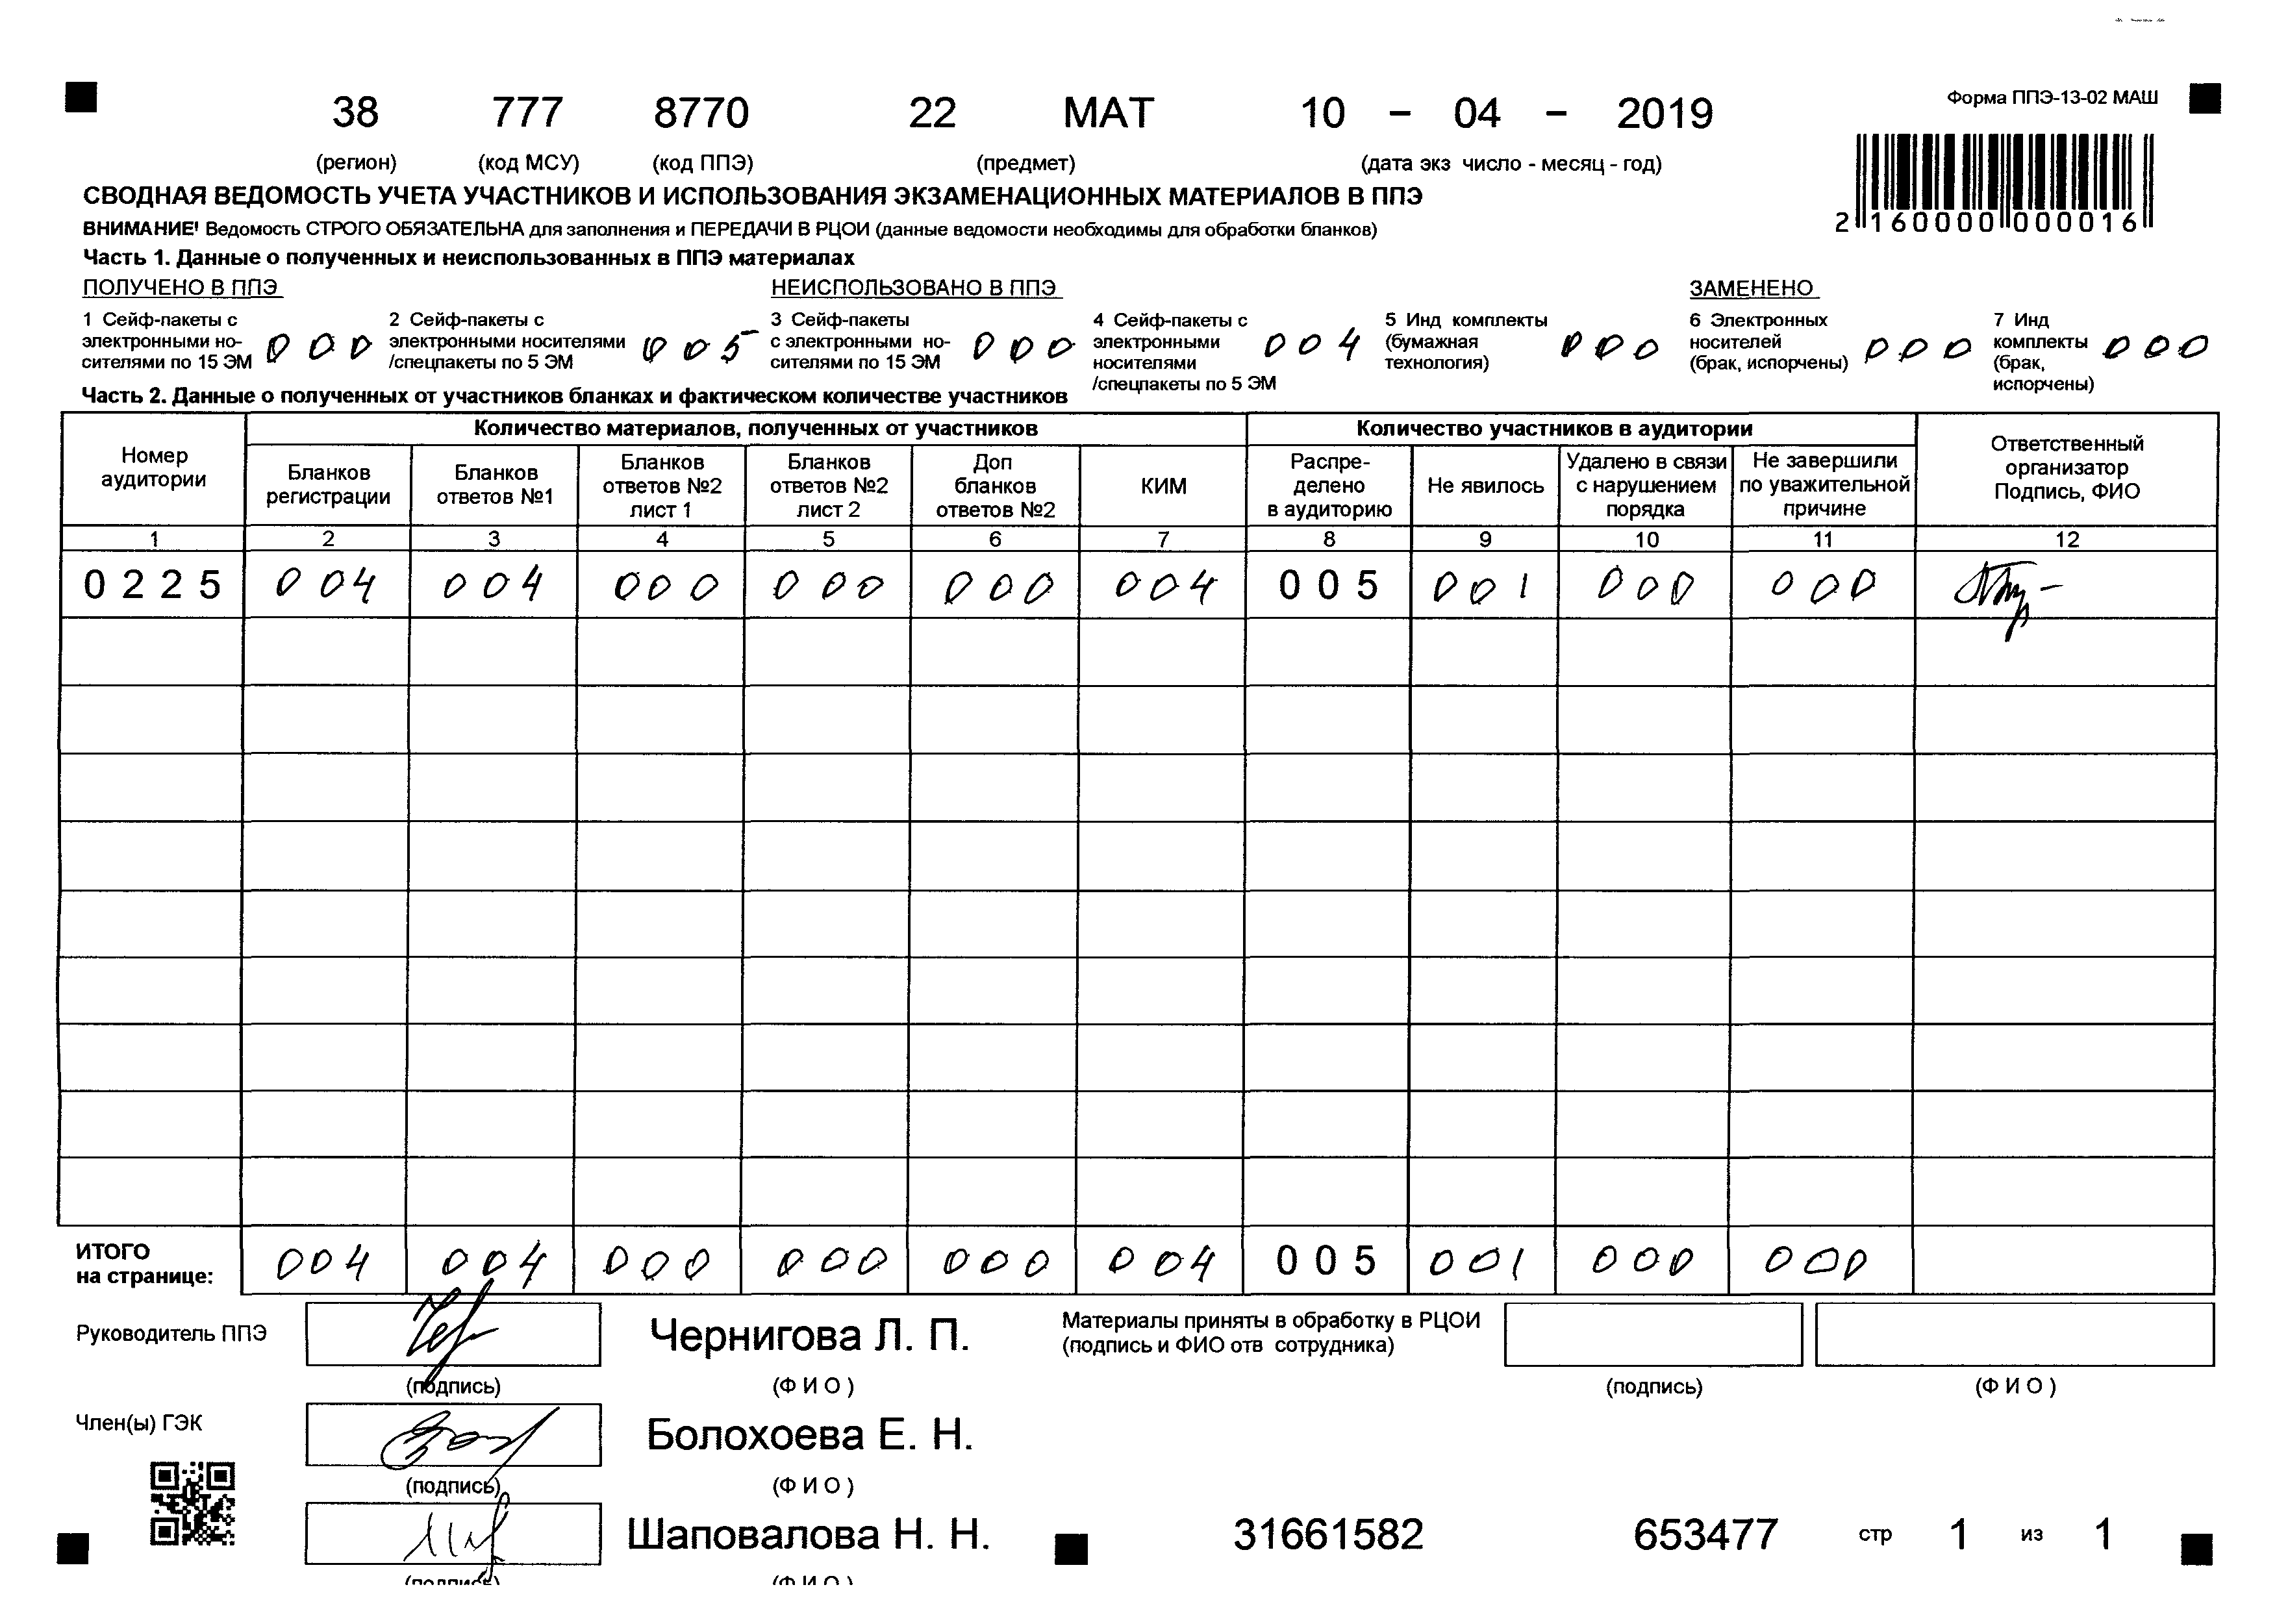 Форма ППЭ-13-02 МАШ
38 777 8770 22 МАТ 10 - 04 - 2019
(регион) (код МСУ) (код ППЭ) (предмет) (дата экз число - месяц - год)
СВОДНАЯ ВЕДОМОСТЬ УЧЕТА УЧАСТНИКОВ И ИСПОЛЬЗОВАНИЯ ЭКЗАМЕНАЦИОННЫХ МАТЕРИАЛОВ В ППЭ
2 160000 000016
ВНИМАНИЕ! Ведомость СТРОГО ОБЯЗАТЕЛЬНА для заполнения и ПЕРЕДАЧИ В РЦОИ (данные ведомости необходимы для обработки бланков)
Часть 1. Данные о полученных и неиспользованных в ППЭ материалах
ПОЛУЧЕНО В ППЭ НЕИСПОЛЬЗОВАНО В ППЭ ЗАМЕНЕНО
1 Сейф-пакеты с
электронными но-
сителями по 15 ЭМ
000
2 Сейф-пакеты с
электронными носителями
/спецпакеты по 5 ЭМ
005
3 Сейф-пакеты
с электронными но-
сителями по 15 ЭМ
000
4 Сейф-пакеты с
электронными
носителями
/спецпакеты по 5 ЭМ
004
5 Инд комплекты
(бумажная
технология)
000
6 Электронных
носителей
(брак, испорчены)
000
7 Инд
комплекты
(брак,
испорчены)
000
Часть 2. Данные о полученных от участников бланках и фактическом количестве участников
Номер
аудитории
Количество материалов, полученных от участников
Количество участников в аудитории
Ответственный
организатор
Подпись, ФИО
Бланков
регистрации
Бланков
ответов №1
Бланков
ответов №2
лист 1
Бланков
ответов №2
лист 2
Доп
бланков
ответов №2
КИМ
Распре-
делено
в аудиторию
Не явилось
Удалено в связи
с нарушением
порядка
Не завершили
по уважительной
причине
1 2 3 4 5 6 7 8 9 10 11 12
0225 004 004 000 000 000 004 005 001 000 000
ИТОГО
на странице:
004 004 000 000 000 004 005 001 000 000
Руководитель ППЭ Чернигова Л. П.
(подпись) (Ф И О)
Материалы приняты в обработку в РЦОИ
(подпись и ФИО отв сотрудника)
(подпись) (Ф И О)
Член(ы) ГЭК Болохоева Е. Н.
(подпись) (Ф И О)
Шаповалова Н. Н. 31661582 653477 стр 1 из 1
(подпись) (Ф И О)